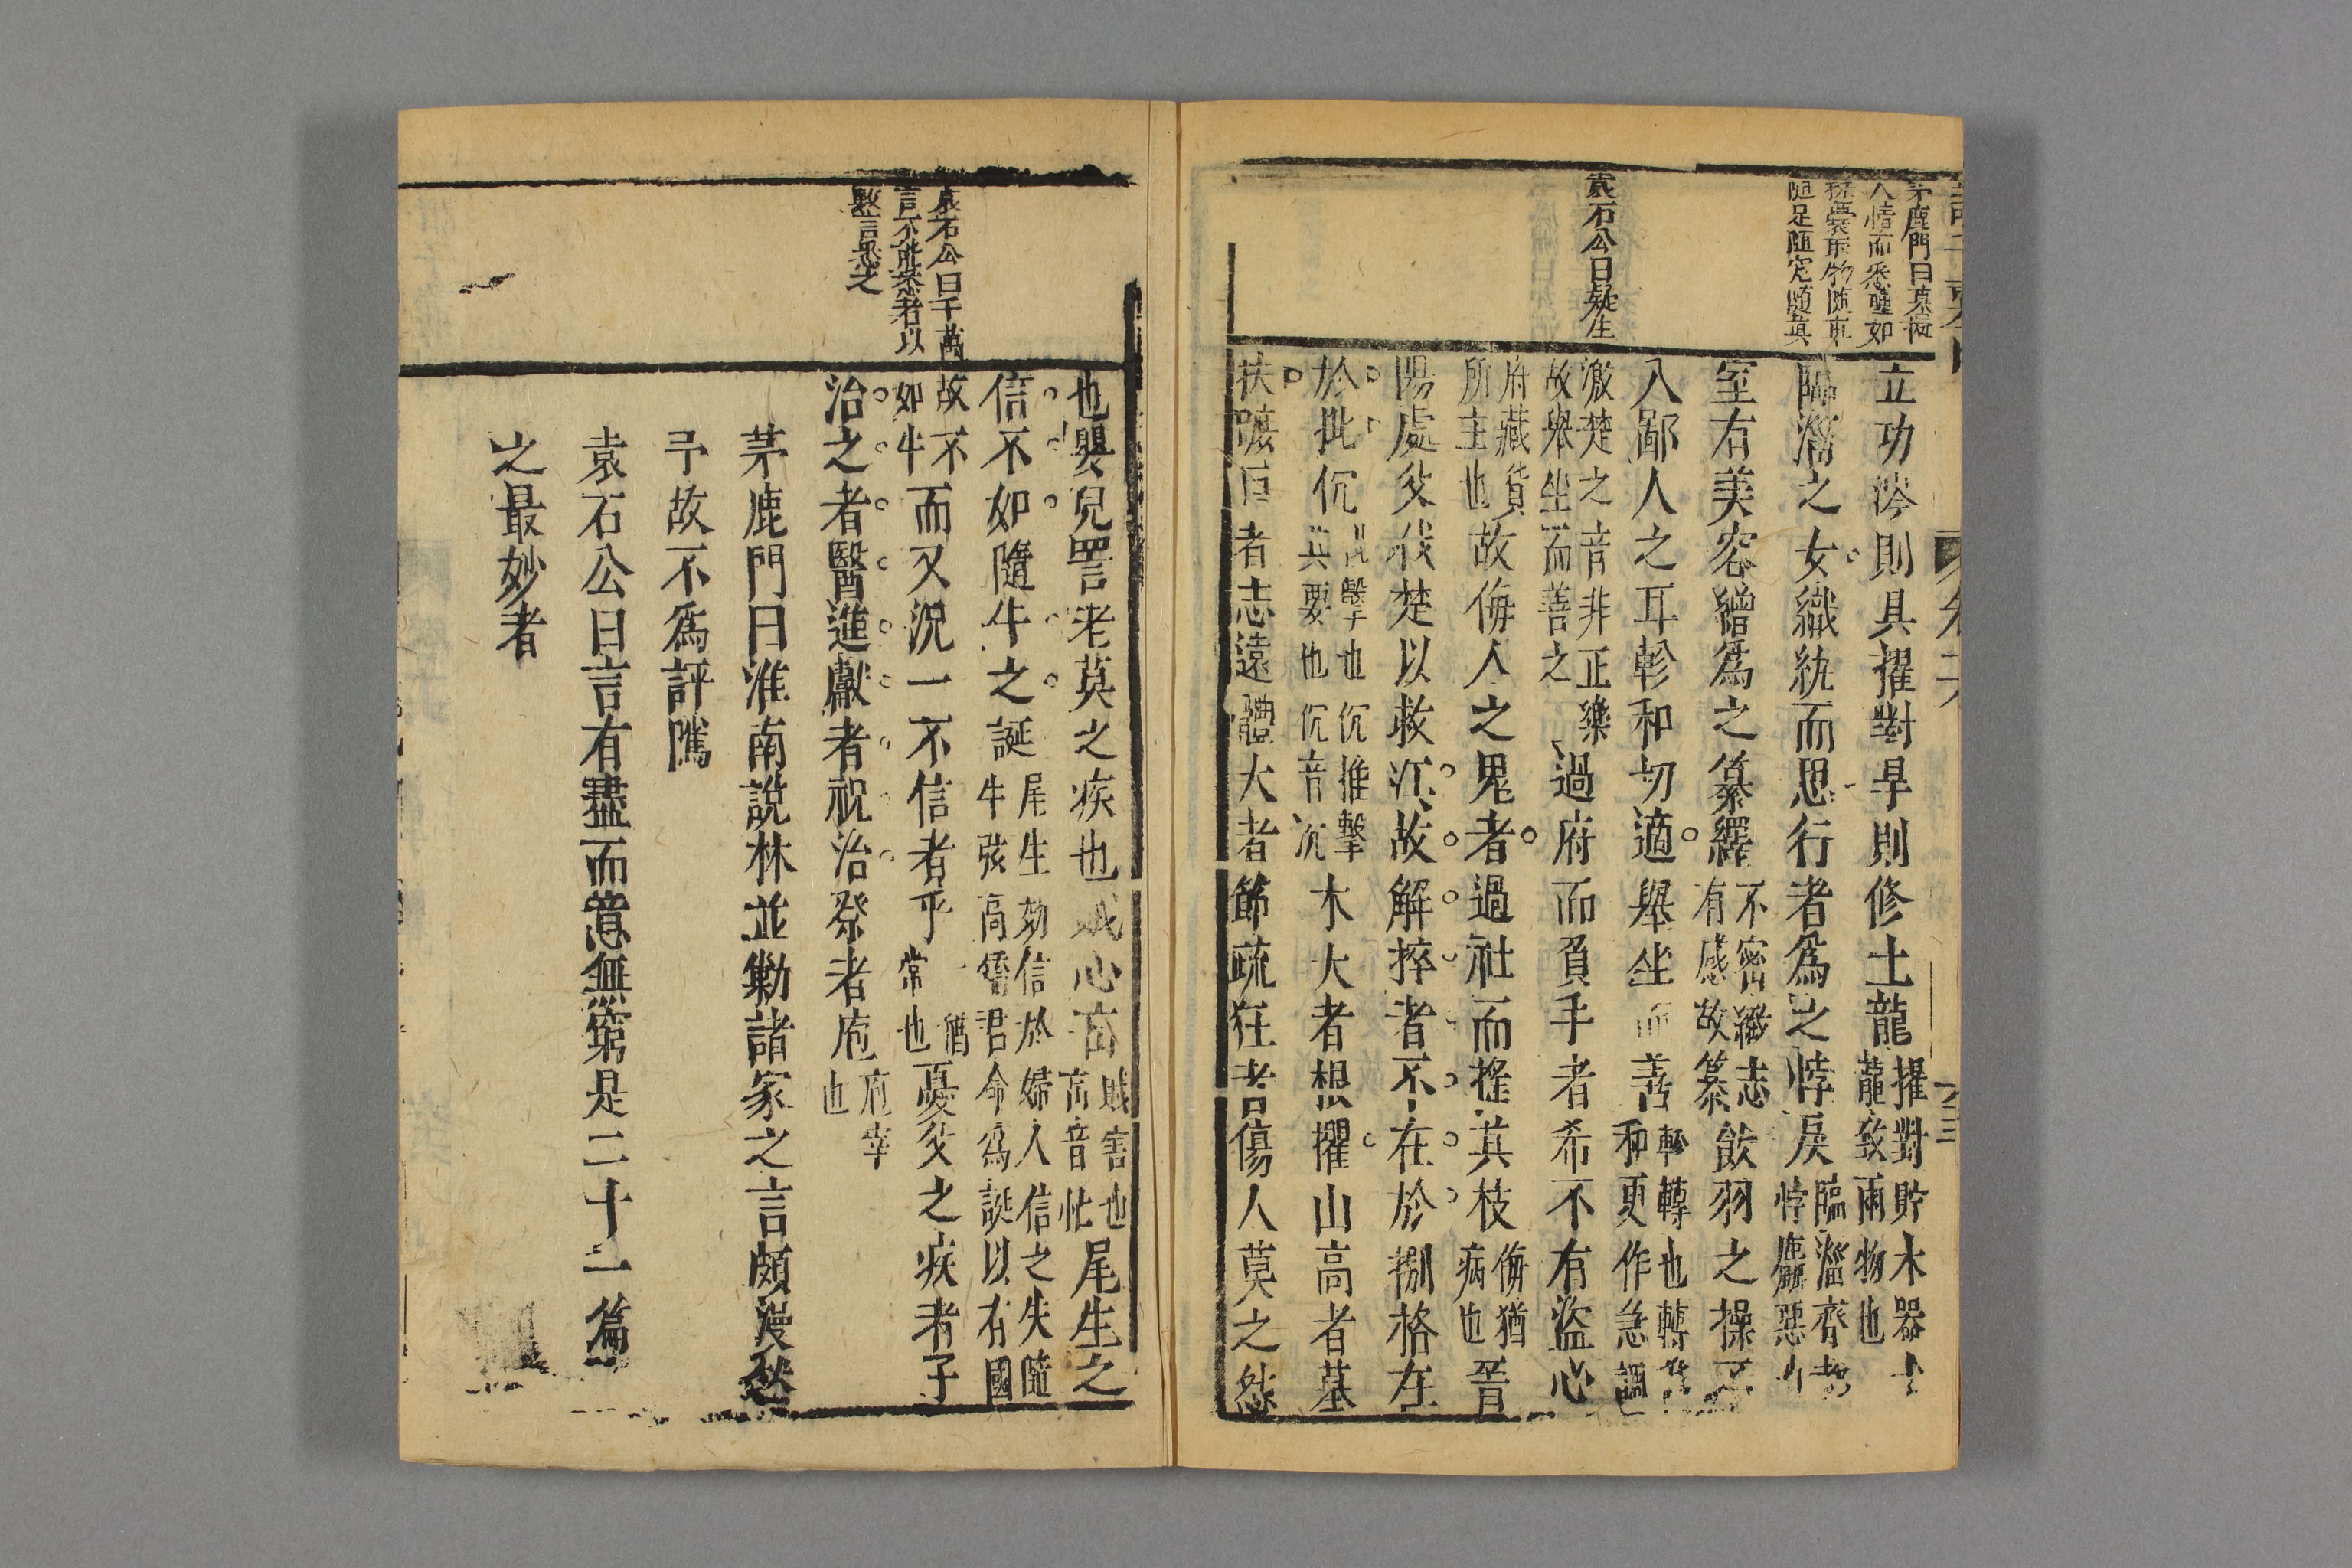 茅鹿門曰
人情而悉
取物隨
隨足隨
袁石公曰凝生
立功涔則具擢對旱則修土龍擢對貯木器
龍致雨物也
臨淄之女織紈而思行者為之悖戾臨淄齊
悖麤惡
室有美容繒為之纂繹不密織志
有感故纂飲羽之操不
入鄙人之耳軫和切適舉坐而善軫轉也轉
和更作急調
激楚之音非正樂
故舉坐而善之過府而負手者希不有盜心
府藏貨
所主也故侮人之鬼者過社而搖其枝侮猶
病也晉
陽處父伐楚以救江故解捽者不在於捌格在
於批伔批擊也伔推擊
其要也伔音沉木大者根欋山高者基
扶蹠巨者志遠體大者節疏狂者傷人莫之怨
也嬰兒詈老莫之疾也賊心㐫賊害也
㐫音忙尾生之
信不如隨牛之誕尾生効信於婦人信之失隨
牛弦高矯君命為誕以存國
故不
如牛而又況一不信者乎猶
常也憂父之疾者子
治之者醫進獻者祝治祭者庖庖宰
也
茅鹿門曰淮南說林並勦諸家之言頗漫
予故不為評隲
袁石公曰言有盡而意無窮是二十一篇
之最妙者
袁石公曰千萬
言不能悉者以
數言悉之